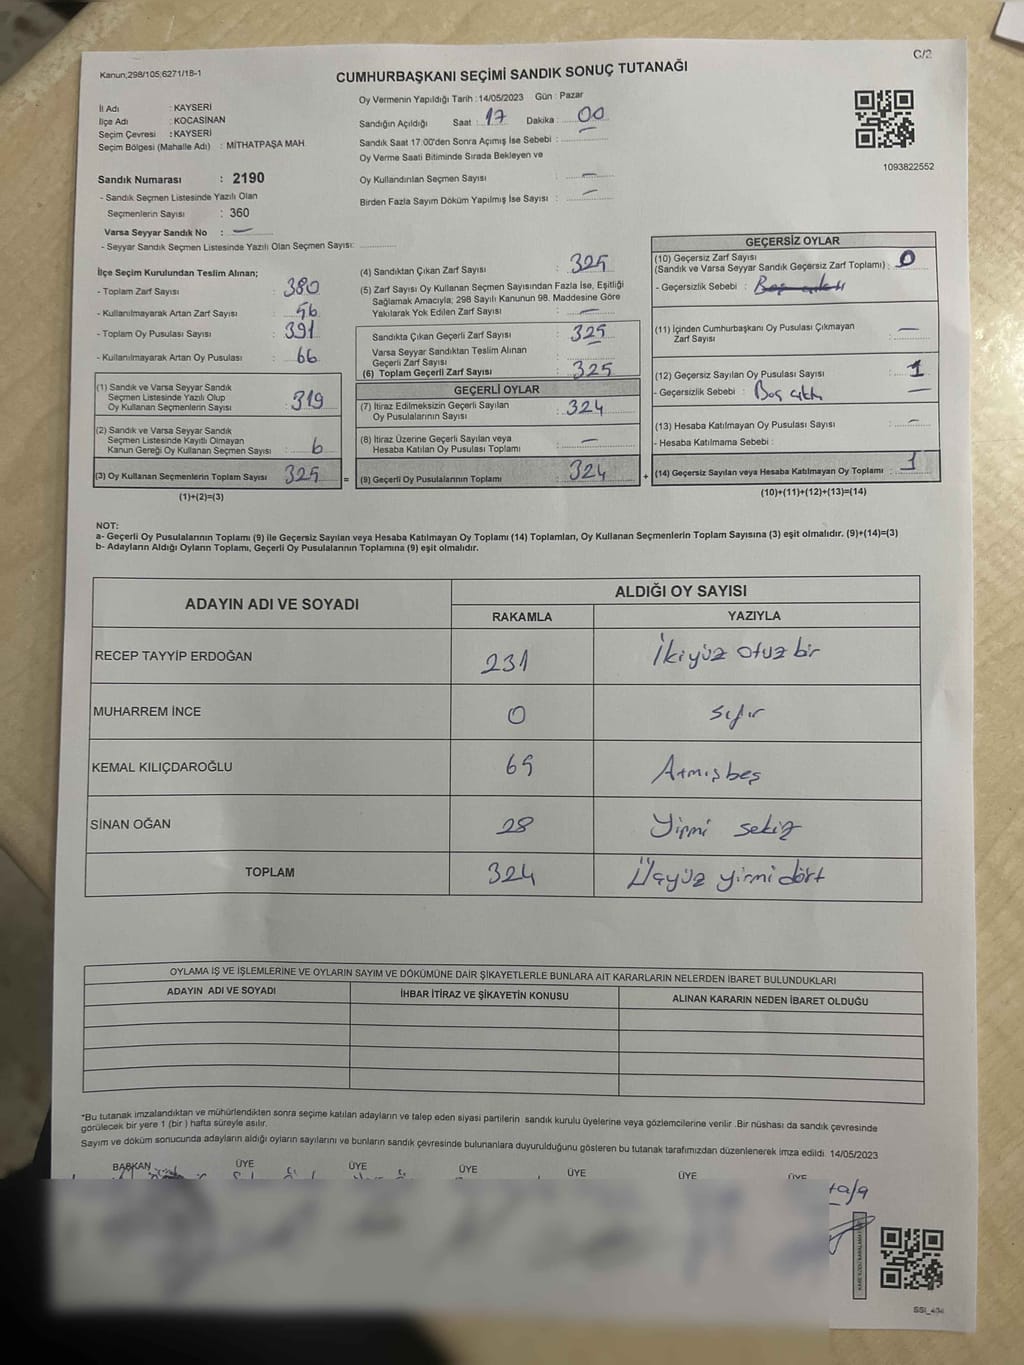 C/2
Kanun;298/105;6271/18-1
CUMHURBAŞKANI SEÇİMİ SANDIK SONUÇ TUTANAĞI
İl Adı : KAYSERİ
İlçe Adı : KOCASİNAN
Seçim Çevresi : KAYSERİ
Seçim Bölgesi (Mahalle Adı) : MİTHATPAŞA MAH
Sandık Numarası : 2190
- Sandık Seçmen Listesinde Yazılı Olan
Seçmenlerin Sayısı : 360
Varsa Seyyar Sandık No : —
- Seyyar Sandık Seçmen Listesinde Yazılı Olan Seçmen Sayısı:
Oy Vermenin Yapıldığı Tarih : 14/05/2023 Gün : Pazar
Sandığın Açıldığı Saat : 17 Dakika : 00
Sandık Saat 17:00'den Sonra Açımış İse Sebebi :
Oy Verme Saati Bitiminde Sırada Bekleyen ve
Oy Kullandırılan Seçmen Sayısı : —
Birden Fazla Sayım Döküm Yapılmış İse Sayısı : —
1093822552
İlçe Seçim Kurulundan Teslim Alınan;
- Toplam Zarf Sayısı : 380
- Kullanılmayarak Artan Zarf Sayısı : 56
- Toplam Oy Pusulası Sayısı : 391
- Kullanılmayarak Artan Oy Pusulası : 66
(1) Sandık ve Varsa Seyyar Sandık
Seçmen Listesinde Yazılı Olup
Oy Kullanan Seçmenlerin Sayısı : 319
(2) Sandık ve Varsa Seyyar Sandık
Seçmen Listesinde Kayıtlı Olmayan
Kanun Gereği Oy Kullanan Seçmen Sayısı : 6
(3) Oy Kullanan Seçmenlerin Toplam Sayısı : 325 =
(1)+(2)=(3)
(4) Sandıktan Çıkan Zarf Sayısı : 325
(5) Zarf Sayısı Oy Kullanan Seçmen Sayısından Fazla İse, Eşitliği
Sağlamak Amacıyla; 298 Sayılı Kanunun 98. Maddesine Göre
Yakılarak Yok Edilen Zarf Sayısı : —
Sandıkta Çıkan Geçerli Zarf Sayısı : 325
Varsa Seyyar Sandıktan Teslim Alınan
Geçerli Zarf Sayısı : —
(6) Toplam Geçerli Zarf Sayısı : 325
GEÇERLİ OYLAR
(7) İtiraz Edilmeksizin Geçerli Sayılan
Oy Pusulalarının Sayısı : 324
(8) İtiraz Üzerine Geçerli Sayılan veya
Hesaba Katılan Oy Pusulası Toplamı : —
(9) Geçerli Oy Pusulalarının Toplamı : 324 +
GEÇERSİZ OYLAR
(10) Geçersiz Zarf Sayısı
(Sandık ve Varsa Seyyar Sandık Geçersiz Zarf Toplamı) : 0
- Geçersizlik Sebebi :
(11) İçinden Cumhurbaşkanı Oy Pusulası Çıkmayan
Zarf Sayısı : —
(12) Geçersiz Sayılan Oy Pusulası Sayısı : 1
- Geçersizlik Sebebi : Boş çıktı —
(13) Hesaba Katılmayan Oy Pusulası Sayısı : —
- Hesaba Katılmama Sebebi :
(14) Geçersiz Sayılan veya Hesaba Katılmayan Oy Toplamı : 1
(10)+(11)+(12)+(13)=(14)
NOT:
a- Geçerli Oy Pusulalarının Toplamı (9) ile Geçersiz Sayılan veya Hesaba Katılmayan Oy Toplamı (14) Toplamları, Oy Kullanan Seçmenlerin Toplam Sayısına (3) eşit olmalıdır. (9)+(14)=(3)
b- Adayların Aldığı Oyların Toplamı, Geçerli Oy Pusulalarının Toplamına (9) eşit olmalıdır.
ADAYIN ADI VE SOYADI ALDIĞI OY SAYISI
RAKAMLA YAZIYLA
RECEP TAYYİP ERDOĞAN 231 İkiyüz otuz bir
MUHARREM İNCE 0 sıfır
KEMAL KILIÇDAROĞLU 65 Atmışbeş
SİNAN OĞAN 28 Yirmi sekiz
TOPLAM 324 Üçyüz yirmi dört
OYLAMA İŞ VE İŞLEMLERİNE VE OYLARIN SAYIM VE DÖKÜMÜNE DAİR ŞİKAYETLERLE BUNLARA AİT KARARLARIN NELERDEN İBARET BULUNDUKLARI
ADAYIN ADI VE SOYADI İHBAR İTİRAZ VE ŞİKAYETİN KONUSU ALINAN KARARIN NEDEN İBARET OLDUĞU
*Bu tutanak imzalandıktan ve mühürlendikten sonra seçime katılan adayların ve talep eden siyasi partilerin sandık kurulu üyelerine veya gözlemcilerine verilir .Bir nüshası da sandık çevresinde
görülecek bir yere 1 (bir ) hafta süreyle asılır.
Sayım ve döküm sonucunda adayların aldığı oyların sayılarını ve bunların sandık çevresinde bulunanlara duyurulduğunu gösteren bu tutanak tarafımızdan düzenlenerek imza edildi. 14/05/2023
BAŞKAN ÜYE ÜYE ÜYE ÜYE ÜYE ÜYE